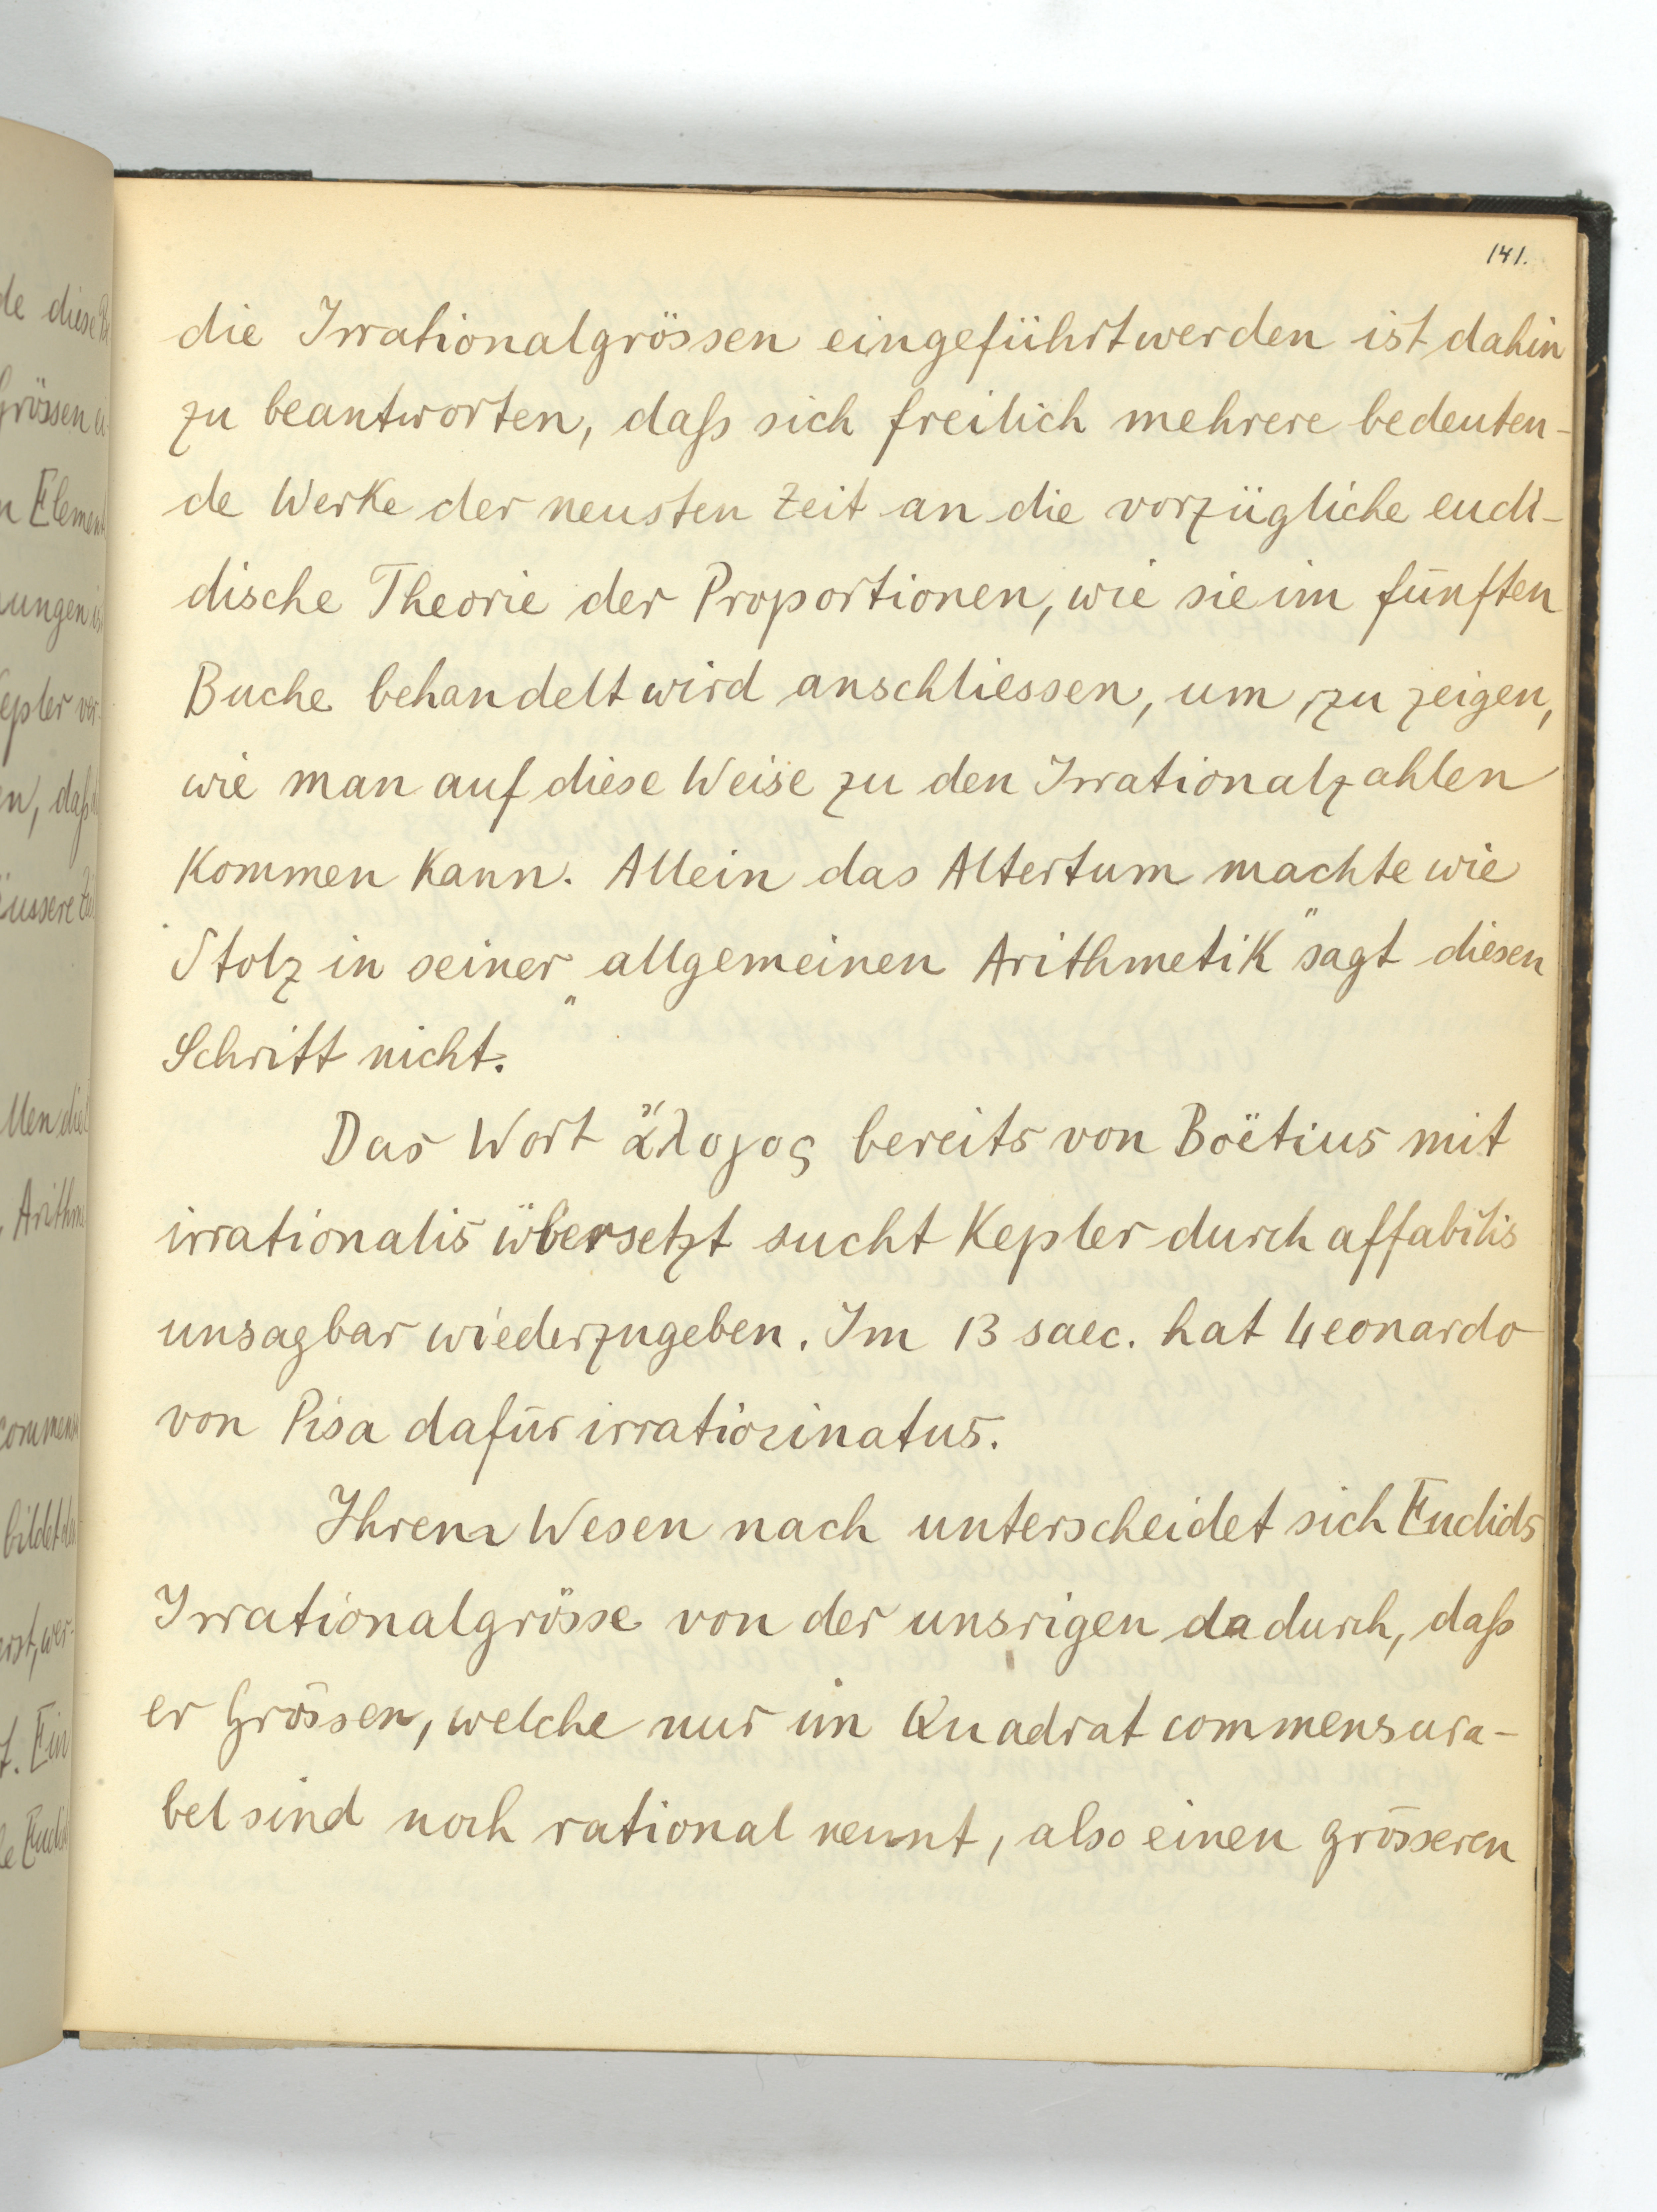 141.
die Irrationalgrössen eingeführt werden ist dahin
zu beantworten, daß sich freilich mehrere bedeuten-
de Werke der neusten Zeit an die vorzügliche eucli-
dische Theorie der Proportionen, wie sie im fünften
Buche behandelt wird anschliessen, um zu zeigen,
wie man auf diese Weise zu den Irrationalzahlen
kommen kann. Allein das Altertum machte wie
Stolz in seiner „allgemeinen Arithmetik" sagt diesen
Schritt nicht.
Das Wort ἄλογος bereits von Boëtius mit
irrationalis übersetzt sucht Kepler durch affabilis
unsagbar wiederzugeben. Im 13 saec. hat Leonardo
von Pisa dafür irratiozinatus.
Ihrem Wesen nach unterscheidet sich Euclids
Irrationalgrösse von der unsrigen dadurch, daß
er Grössen, welche nur im Quadrat commensura-
bel sind noch rational nennt, also einen grösseren